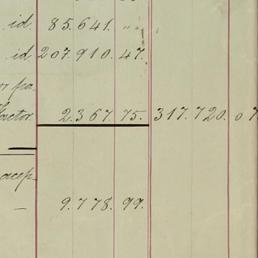 id. 85.641. ""
id 207.910.47.
r pa
factor 2.367.75. 317.720.07
acep
— 9.778.99.